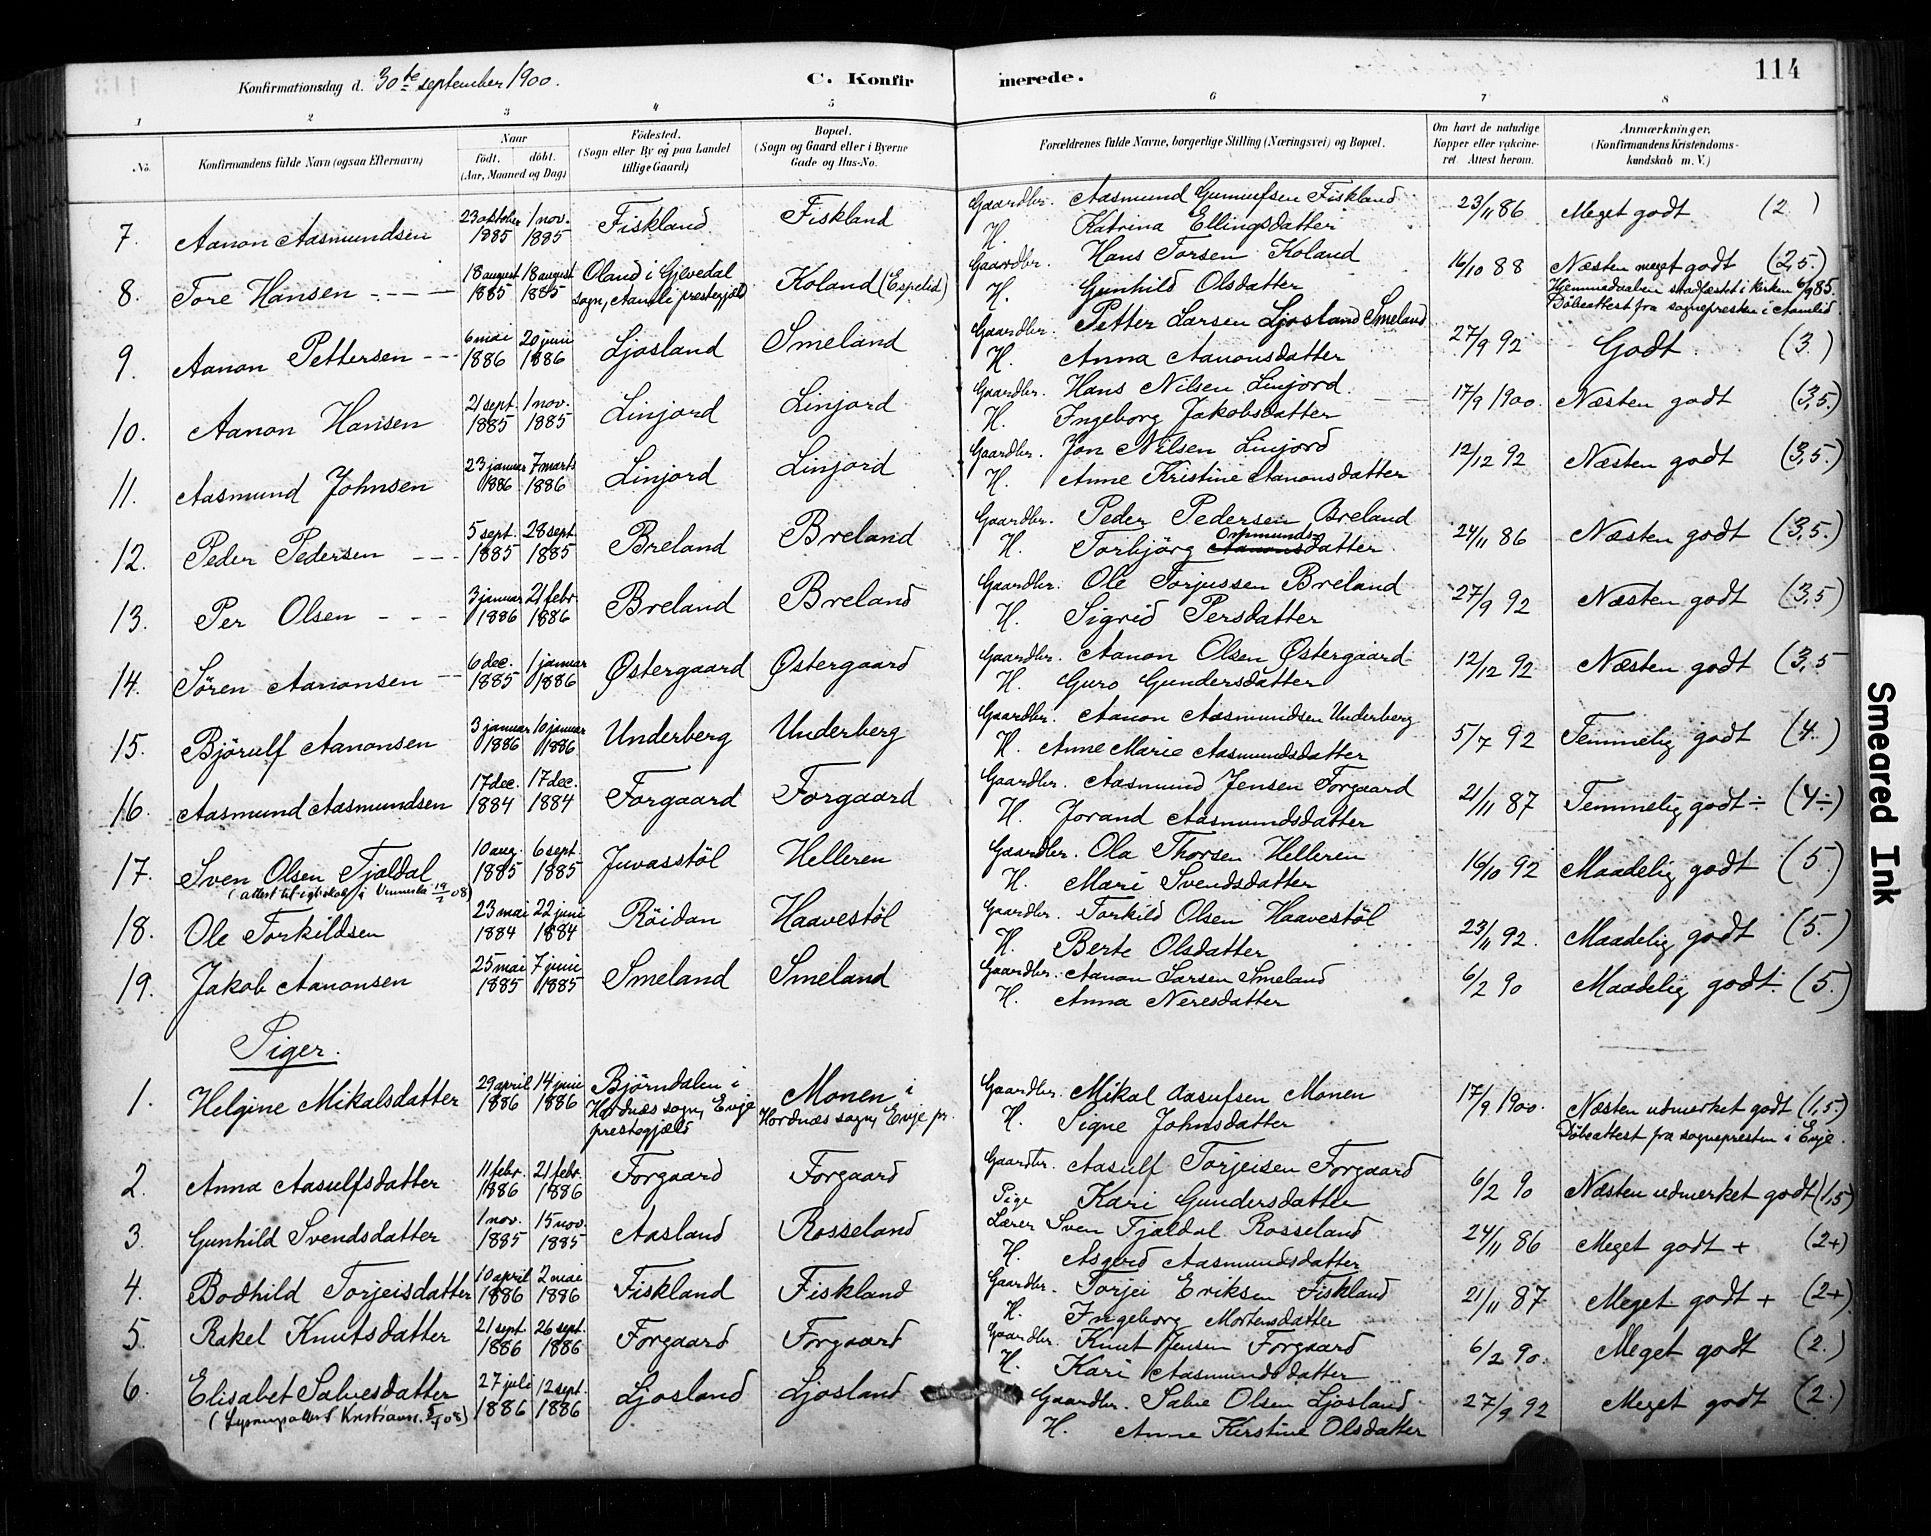 Konfirmationsdag d. 30te september 1900.
C. Konfirmerede.
114
1 2 3 4 5 6 7 8
No. Konfirmandens fulde Navn (ogsaa Efternavn) Naar født. døbt. (Aar, Maaned og Dag) Fødested. (Sogn eller By og paa Landet tillige Gaard) Bopæl. (Sogn og Gaard eller i Byerne Gade og Hus-No. Forældrenes fulde Navne, borgerlige Stilling (Næringsvei) og Bopæl. Om havt de naturlige Kopper eller vakcineret Attest herom. Anmærkninger. (Konfirmandens Kristendomskundskab m. V.)
7. Aanon Aasmundsen 23 oktober 1885 1 nov. 1885 Fiskland Fiskland Gaardbr. Aasmund Gunnufsen Fiskland 23/11 86 Meget godt (2)
H. Katrina Ellingsdatter
8. Tore Hansen 18 august 1885 18 august 1885 Oland i Gjevedal sogn, Aamli prestegjæld Koland (Espelid) Gaardbr. Hans Torsen Koland 16/10 88 Næsten meget godt (2,5.)
H. Gunhild Olsdatter Hjemmedaaben stadfæstet i kirken 6/9 85. Døbeattest fra sognepresten i Aamlid.
9. Aanon Pettersen 6 mai 1886 20 juni 1886 Ljosland Smeland Gaardbr. Petter Larsen Ljosland Smeland 27/9 92 Godt. (3.)
H. Anna Aanonsdatter
10. Aanon Hansen 21 sept. 1885 1 nov. 1885 Linjord Linjord Gaardbr. Hans Nilsen Linjord 17/9 1900. Næsten godt (3,5.)
H. Ingeborg Jakobsdatter
11. Aasmund Johnsen 23 januar 1886 7 marts 1886 Linjord Linjord Gaardbr. Jon Nilsen Linjord 12/12 92 Næsten godt (3,5.)
H. Anne Kristine Aanonsdatter
12. Peder Pedersen 5 sept. 1885 28 sept. 1885 Breland Breland Gaardbr. Peder Pedersen Breland 24/11 86 Næsten godt (3,5.)
H. Torbjørg Aanonsdatter
13. Per Olsen 3 januar 1886 21 febr. 1886 Breland Breland Gaardbr. Ole Torjussen Breland 27/9 92 Næsten godt (3,5)
H. Sigrid Persdatter
14. Søren Aanonsen 6 dec. 1885 1 januar 1886 Østergaard Østergaard Gaardbr. Aanon Olsen Østergaard 12/12 92 Næsten godt (3,5
H. Guro Gundersdatter
15. Bjørulf Aanonsen 3 januar 1886 10 januar 1886 Underberg Underberg Gaardbr. Aanon Aasmundsen Underberg 5/7 92 Temmelig godt (4.)
H. Anne Marie Aasmundsdatter
16. Aasmund Aasmundsen 17 dec. 1884 17 dec. 1884 Forgaard Forgaard Gaardbr. Aasmund Jensen Forgaard 21/11 87 Temmelig godt ÷ (4÷)
H. Jorand Aasmundsdatter
17. Sven Olsen Tjaldal 10 aug. 1885 6 sept. 1885 Juvasstöl Helleren Gaardbr. Ola Thorsen Helleren 16/10 92 Maadelig godt (5.)
H. Mari Svendsdatter
18. Ole Torkildsen 23 mai 1884 22 juni 1884 Röidan Haavestöl Gaardbr. Torkild Olsen Haavestöl 23/11 92. Maadelig godt (5.)
H. Berte Olsdatter
19. Jakob Aanonsen 25 mai 1885 7 juni 1885 Smeland Smeland Gaardbr. Aanon Larsen Smeland 6/2 90 Maadelig godt (5.)
H. Anna Neresdatter
Piger.
1. Helgine Mikalsdatter 29 april 1886 14 juni 1886 Björndalen i Hordnæs sogn, Evje prestegjæld Monen i Hordnæs sogn, Evje pr. Gaardbr. Mikal Aasufsen Monen 17/9 1900. Næsten udmerket godt (1,5.)
H. Signe Johnsdatter Døbeattest fra sognepresten i Evje.
2. Anna Aasulfsdatter 11 febr. 1886 21 febr. 1886 Forgaard Forgaard Gaardbr. Aasulf Torjeisen Forgaard 6/2 90 Næsten udmerket godt (1,5)
Pige Kari Gundersdatter
3. Gunhild Svendsdatter 1 nov. 1885 15 nov. 1885 Aasland Rosseland Lærer Sven Tjaldal Rosseland 24/11 86 Meget godt + (2+)
H. Asgerd Aasmundsdatter
4. Bodhild Torjeisdatter 10 april 1886 2 mai 1886 Fiskland Fiskland Gaardbr. Torjei Eriksen Fiskland 21/11 87 Meget godt + (2+)
H. Ingeborg Mortensdatter
5. Rakel Knutsdatter 21 sept. 1886 26 sept. 1886 Forgaard Forgaard Gaardbr. Knut Jensen Forgaard 6/2 90. Meget godt (2.)
H. Kari Aasmundsdatter
6. Elisabet Salvesdatter 27 juli 1886 12 sept. 1886 Ljosland Ljosland Gaardbr. Salve Olsen Ljosland 27/9 92 Meget godt (2.)
H. Anne Kirstine Olsdatter
Smeared Ink